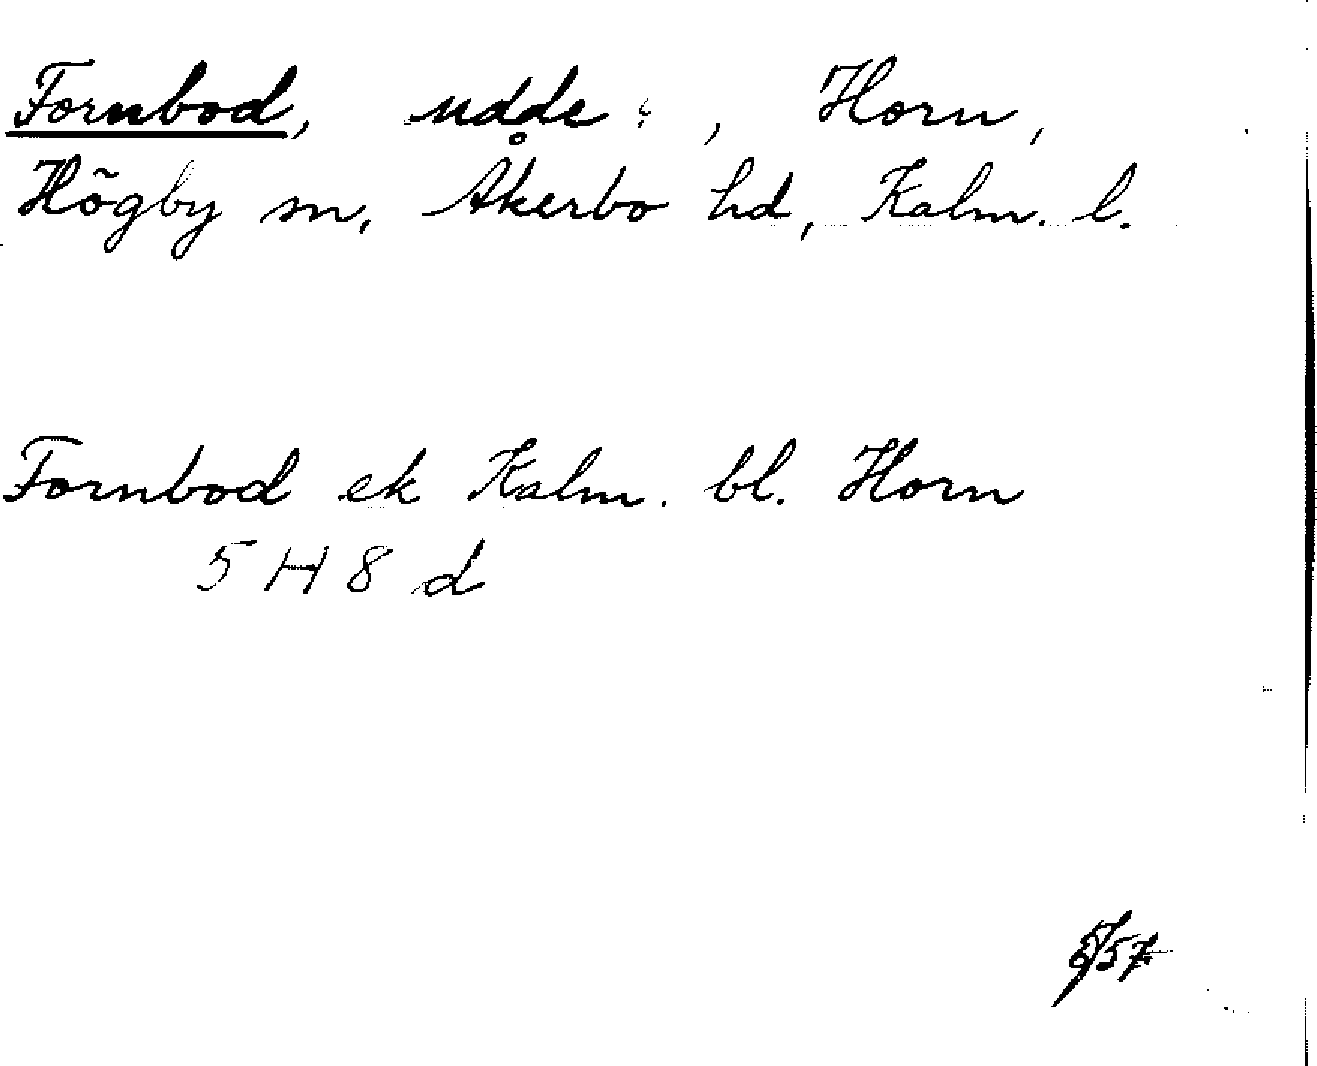 Fornbod, udde, Horn,
Högby sn, Åkerbo hd, Kalm. l.
Fornbod ek Kalm. bl. Horn
5 H 8 d